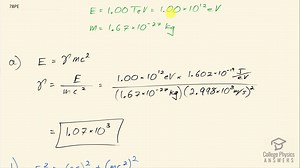 78PE
E = 1.00 TeV = 1.00 × 10¹² eV
m = 1.67 × 10⁻²⁷ kg
a) E = γmc²
γ = E/mc² = 1.00 × 10¹² eV × 1.602 × 10⁻¹⁹ J/eV / (1.67 × 10⁻²⁷ kg)(2.998 × 10⁸ m/s)²
= 1.07 × 10³
College Physics
ANSWERS